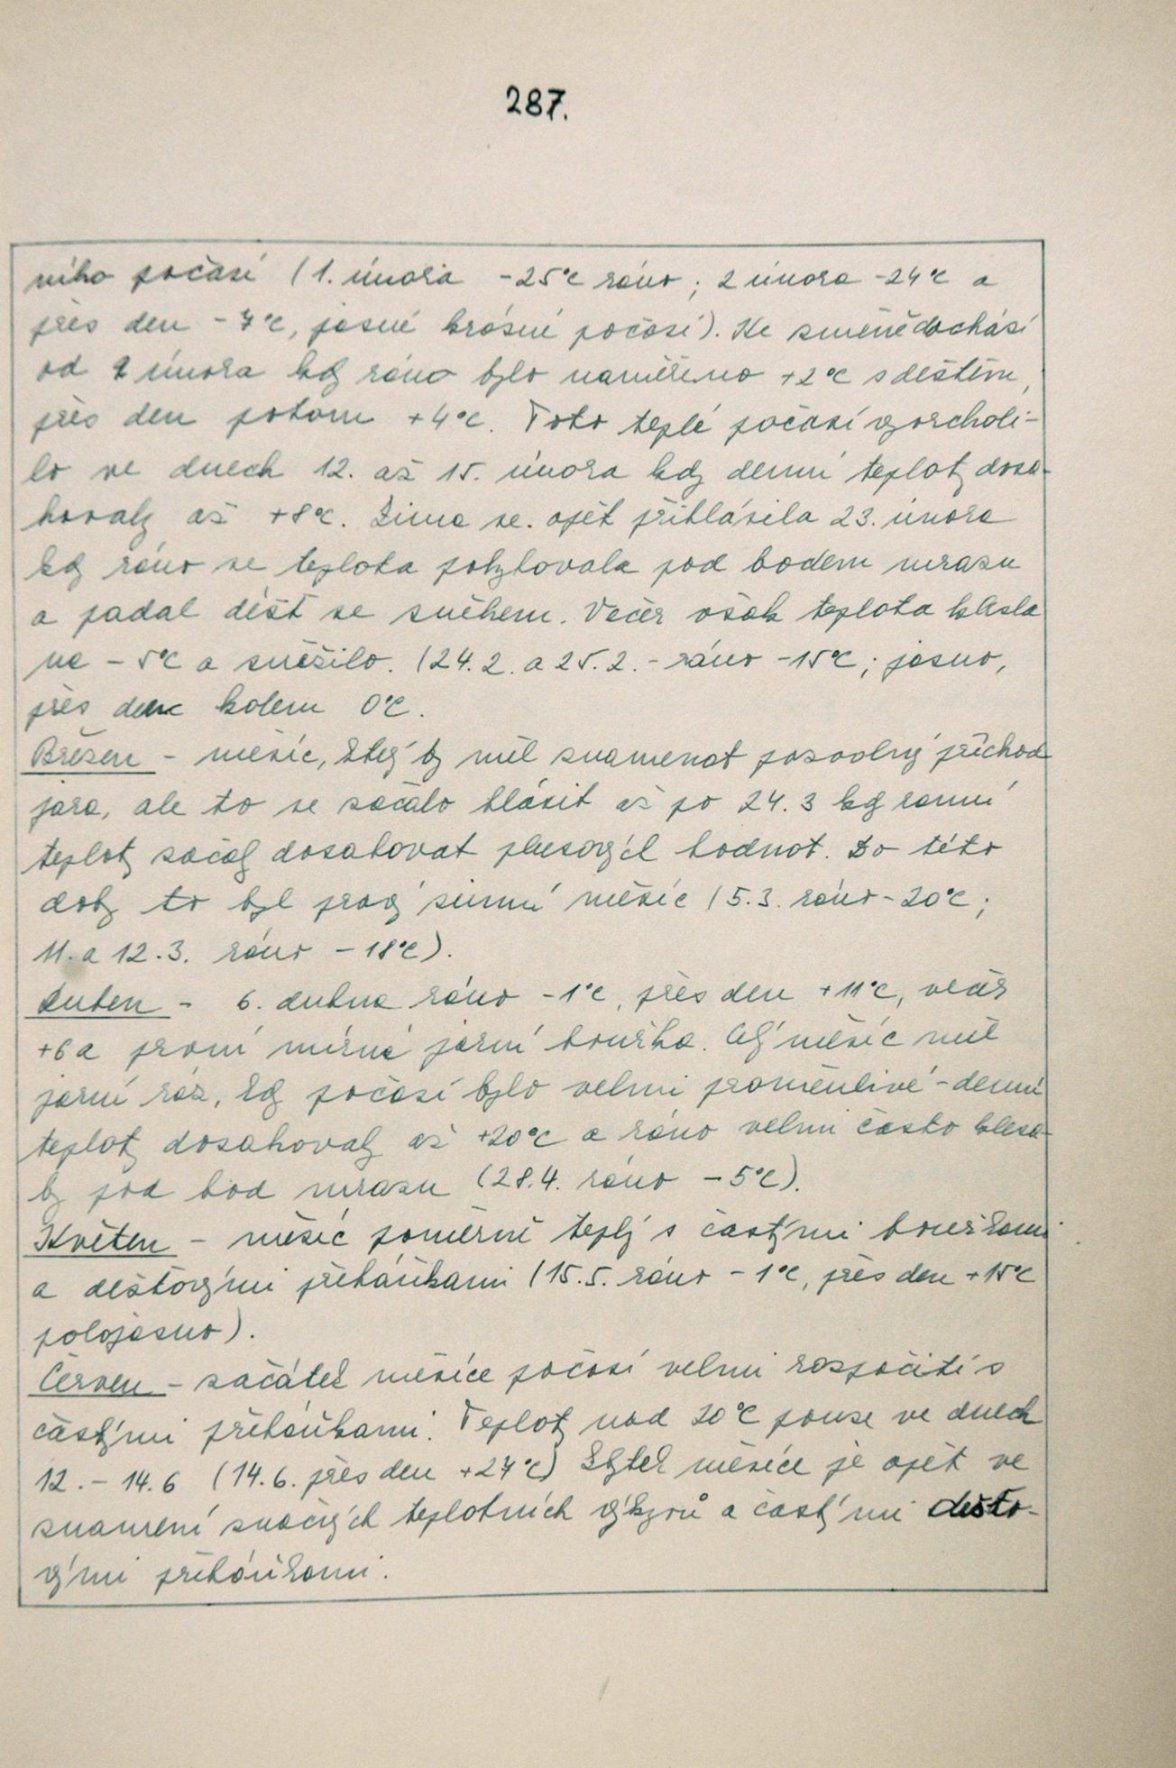 287.
ního počasí (1. února -25°C ráno; 2 února -24°C a
přes den -7°C, jasné krásné počasí). Ke změně dochází
od února kdy ráno bylo naměřeno +2°C s deštěm,
přes den potom +4°C. Toto teplé počasí vyvrcholi-
lo ve dnech 12. až 15. února kdy denní teploty dosa-
hovaly až +8°C. Zima se. opět přihlásila 23. února
kdy ráno se teplota pohybovala pod bodem mrazu
a padal déšť se sněhem. Večer však teplota klesla
na -5°C a sněžilo. (24.2. a 25.2. - ráno -15°C; jasno,
přes den kolem 0°C.
Březen - měsíc, který by měl znamenat pozvolný příchod
jara, ale to se začalo hlásit až po 24.3 kdy ranní
teploty začaly dosahovat plusových hodnot. Do této
doby to byl pravý zimní měsíc (5.3. ráno -20°C;
11. a 12.3. ráno -18°C).
Duben - 6. dubna ráno -1°C, přes den +11°C, večer
+6 a první mírná jarní bouřka. Celý měsíc měl
jarní ráz, kdy počasí bylo velmi proměnlivé - denní
teploty dosahovaly až +20°C a ráno velmi často klesa-
ly pod bod mrazu (28.4. ráno -5°C).
Květen - měsíc poměrně teplý s častými bouřkami
a dešťovými přeháňkami (15.5. ráno -1°C, přes den +15°C
polojasno).
Červen - začátek měsíce počasí velmi rozpačité s
častými přeháňkami. Teploty nad 20°C pouze ve dnech
12. - 14.6 (14.6. přes den +27°C) Zbytek měsíce je opět ve
znamení značných teplotních výkyvů a častými dešťo-
vými přeháňkami.